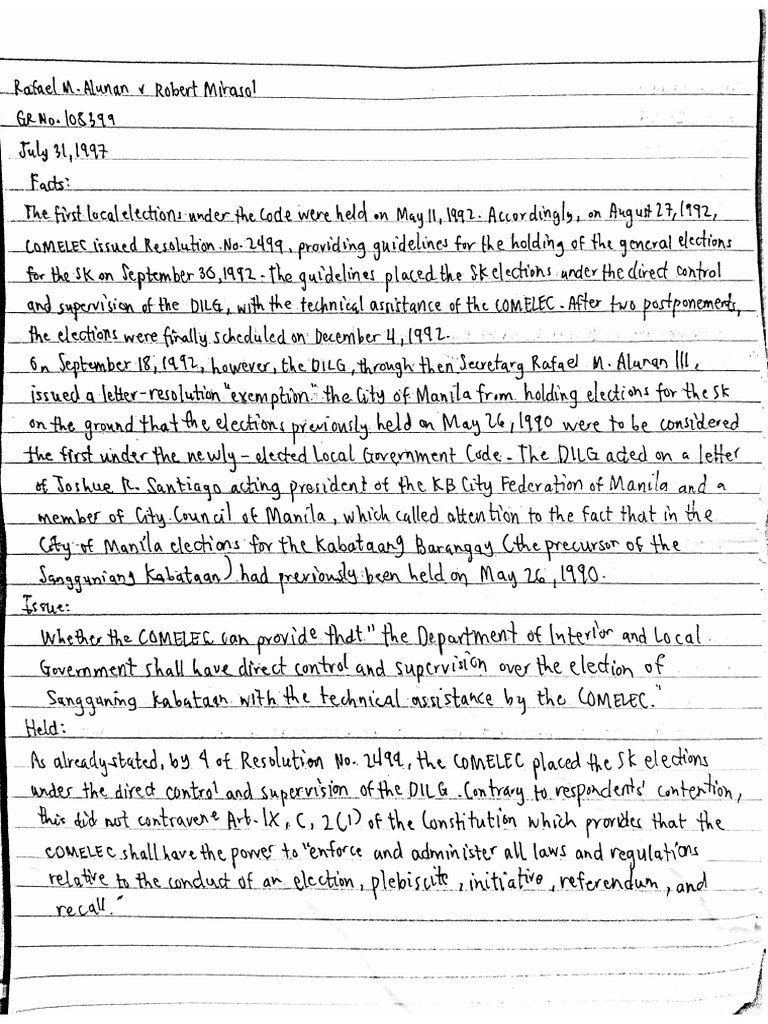 Rafael M. Alunan v Robert Mirasol
GR No. 108399
July 31, 1997
Facts:
The first local elections under the Code were held on May 11, 1992. Accordingly, on August 27, 1992,
COMELEC issued Resolution. No. 2499, providing guidelines for the holding of the general elections
for the SK on September 30, 1992. The guidelines placed the SK elections under the direct control
and supervision of the DILG, with the technical assistance of the COMELEC. After two postponements,
the elections were finally scheduled on December 4, 1992.
On September 18, 1992, however, the DILG, through then Secretary Rafael M. Alunan III,
issued a letter-resolution "exemption" the City of Manila from holding elections for the SK
on the ground that the elections previously held on May 26, 1990 were to be considered
the first under the newly-elected Local Government Code. The DILG acted on a letter
of Joshue R. Santiago acting president of the KB City Federation of Manila and a
member of City Council of Manila, which called attention to the fact that in the
City of Manila elections for the Kabataang Barangay (the precursor of the
Sangguniang Kabataan) had previously been held on May 26, 1990.
Issue:
Whether the COMELEC can provide that "the Department of Interior and Local
Government shall have direct control and supervision over the election of
Sangguning Kabataan with the technical assistance by the COMELEC."
Held:
As already stated, by 4 of Resolution No. 2499, the COMELEC placed the SK elections
under the direct control and supervision of the DILG. Contrary to respondents' contention,
this did not contravene Art. IX, C, 2(1) of the Constitution which provides that the
COMELEC shall have the power to "enforce and administer all laws and regulations
relative to the conduct of an election, plebiscite, initiative, referendum, and
recall."